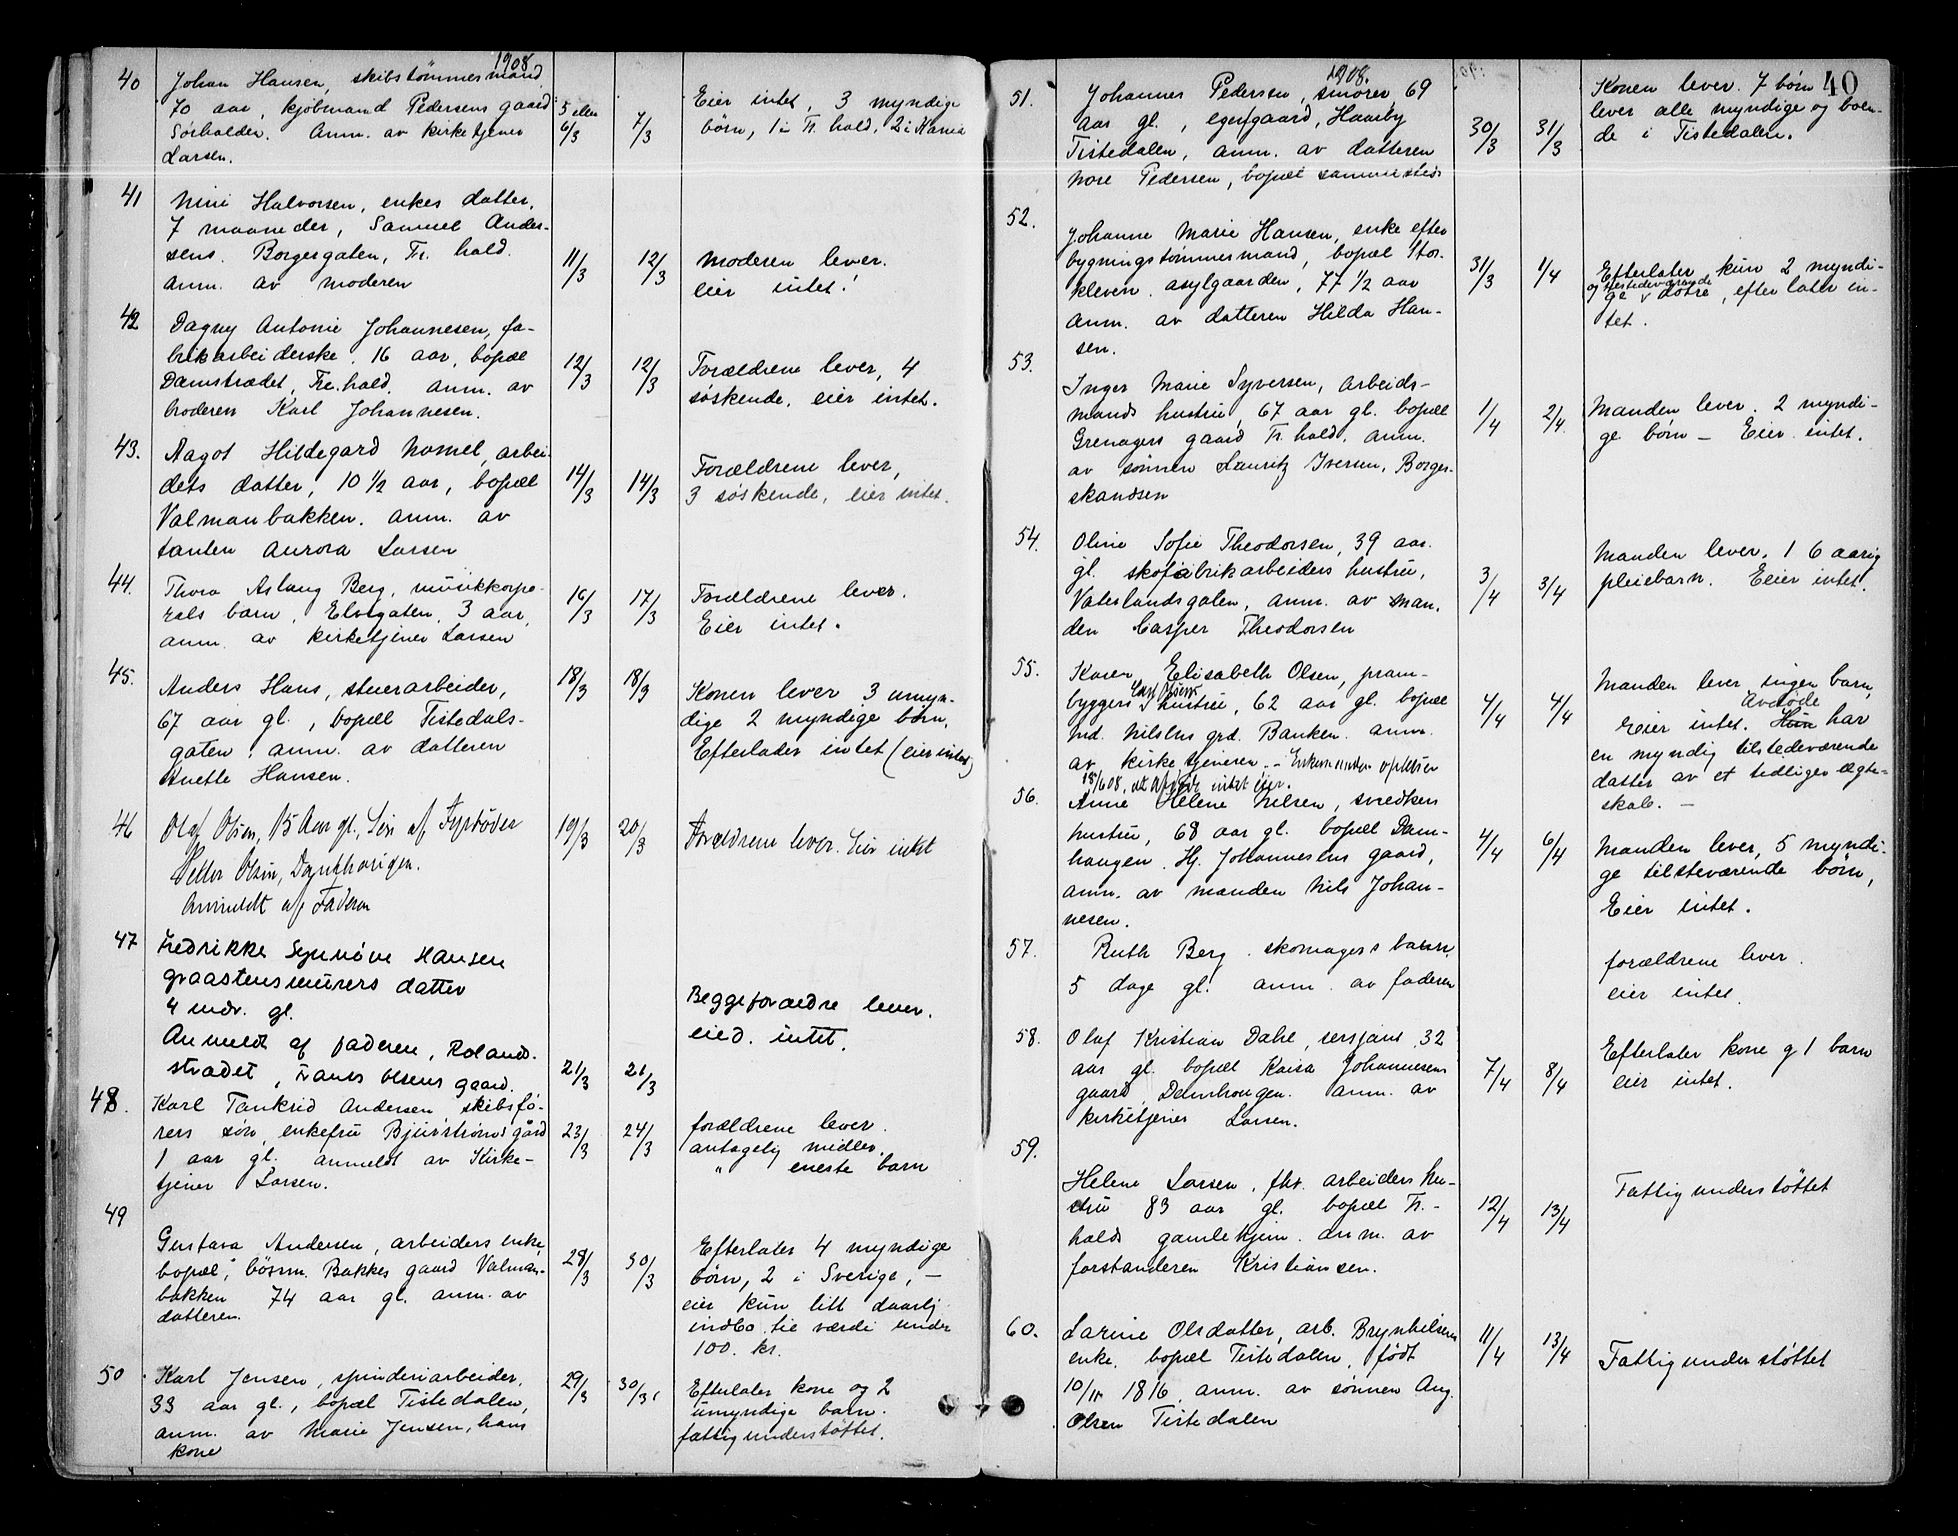 1908
40 Johan Hansen, skibstømmermand
70 aar, kjøbmand Pedersens gaard 5 eller
Sørhalden. Anm. av kirketjener 6/3 7/3
Larsen.
Eier intet, 3 myndige
børn, 1 i Fr. hald, 2 i Kania
41 Nini Halvorsen, enkes datter,
7 maaneder, Samuel Ander-
sens. Borgergaten, Fr. hald.
anm. av moderen 11/3 12/3
Moderen lever.
eier intet!
42 Dagny Antonie Johannesen, fa-
brikarbeiderske. 16 aar, bopæl
Damstrædet, Fr.hald. anm. av
broderen Karl Johannesen. 12/3 12/3
Forældrene lever, 4
søskende, eier intet.
43. Aagot Hildegard Nomel, arbei-
dets datter, 10 1/2 aar, bopæl
Valmanbakken. anm. av
tanten Aurora Larsen 14/3 14/3
Forældrene lever,
3 søskende, eier intet.
44. Thora Aslaug Berg, musikkorpo-
rals barn, Elvegaten, 3 aar,
anm. av kirketjener Larsen 16/3 17/3
Forældrene lever.
Eier intet.
45. Anders Hans, stuerarbeider,
67 aar gl., bopæl Tistedals-
gaten, anm. av datteren
Anette Hansen. 18/3 18/3
Konen lever 3 umyn-
dige 2 myndige børn,
Efterlader intet (eier intet)
46 Olaf Olsen, 15 Aar gl., Søn af Fyrbøder
Petter Olsen,
Anmeldt af Faderen 19/3 20/3
Forældrene lever. Eier intet
47 Fredrikke Synnøve Hansen
graastensmurers datter
4 mdr. gl.
Anmeldt af faderen, Roland-
strædet, Frants Olsens gaard. 21/3 21/3
Begge foræedre lever.
eied. intet.
48. Karl Tankrid Andersen, skibsfø-
rers søn, enkefru Bjurstrøms gård
1 aar gl. anmeldt av Kirke-
tjener Larsen. 23/3 24/3
forældrene lever.
antagelig midler.
" eneste barn
49 Gustava Andersen, arbeiders enke,
bopæl, bøssm. Bakkes gaard Valman-
bakken 74 aar gl. anm. av
datteren. 28/3 30/3
Efterlater 4 myndige
børn, 2 i Sverige, -
eier kun litt daarlj
indbo til værdi under
100. kr.
50 Karl Jensen, spinderiarbeider,
33 aar gl., bopæl Tistedalen,
anm. av Marie Jensen, hans
kone 29/3 30/3
Efterlater kone og 2
umyndige barn.
fattigunderstøttet.
1908.
40
51. Johannes Pedersen, smører, 69
aar gl., egen gaard, Haaby
Tistedalen, anm. av datteren
Nore Pedersen, bopæl sammesteds 30/3 31/3
Konen lever. 7 børn
lever alle myndige og boen-
de i Tistedalen.
52. Johanne Marie Hansen, enke efter
bygningstømmermand, bopæl Stor-
kleven. asylgaarden, 77 1/2 aar
anm. av datteren Hilda Han-
sen. 31/3 1/4
Efterlater kun 2 myndi-
og tilstedeværende
ge v døtre, efterlater in-
tet.
53. Inger Marie Syversen, arbeids-
mands hustru, 67 aar gl. bopæl
Grenagers gaard, Fr. hald. anm.
av sønnen Lauritz Iversen, Borger-
skandsen 1/4 2/4.
Manden lever. 2 myndi-
ge børn - Eier intet.
54. Oline Sofie Theodorsen, 39 aar.
gl. skofabrikarbeiders hustru,
Vaterlandsgaten, anm. av man-
den Casper Theodorsen 3/4 3/4
Manden lever. 1 6 aarig
pleiebarn. Eier intet.
55. Karen Elisabeth Olsen, pram-
byggers hustru, 62 aar gl. bopæl
Hd. Nilsens grd. Banken. anm.
av kirketjeneren. - Enkemanden oplyser
18/6 08, at afdøde intet eier. 4/4 4/4
Manden lever ingen barn,
Avdøde
Eier intet. Hun har
en myndig tilstedeværende
datter av et tidligere ægte-
skab. -
56. Anne Helene Nilsen, snedkers
hustru, 68 aar gl. bopæl Dam-
haugen. Hj. Johannesens gaard,
anm. av manden Nils Johan-
nesen. 4/4 6/4
Manden lever, 5 myndi-
ge tilsteværende børn,
Eier intet.
57. Ruth Berg. skomagers barn,
5 dage gl. anm. av faderen
forældrene lever.
eier intet.
58. Oluf Kristian Dahl, sersjant, 32
aar gl. bopæl Kaisa Johannesens
gaard, Damhaugen. anm. av
kirketjener Larsen. 7/4 8/4
Efterlater kone g 1 barn
eier intet.
59. Helene Larsen, fhv. arbeiders hu-
stru 83 aar gl. bopæl Fr.-
halds gamlehjem. anm. av
forstanderen Kristiansen. 12/4 13/4
Fattigunderstøttet
60. Larine Olsdatter, arb. Brynhilsens
enke. bopæl Tistedalen, født
10/11 1816, anm. av sønnen Aug.
Olsen Tistedalen 11/4 13/4
Fattigunderstøttet